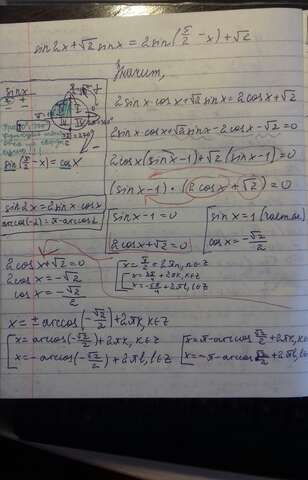 sin2x+√2 sinx = 2sin(π/2 - x)+√2
Значит,
sinx
2sinx·cosx+√2 sinx = 2cosx+√2
2sinx·cosx+√2 sinx-2cosx-√2=0
2cosx(sinx-1)+√2(sinx-1)=0
sin(π/2-x)=cosx
(sinx-1)·(2cosx+√2)=0
sin2x=2sinx·cosx
arccos(-a)=π-arccosa
sinx-1=0
2cosx+√2=0
sinx=1
cosx=-√2/2
2cosx+√2=0
2cosx=-√2
cosx=-√2/2
x=π/2+2πn, n∈Z
x=3π/4+2πk, k∈Z
x=-3π/4+2πl, l∈Z
x=±arccos(-√2/2)+2πk, k∈Z
x=arccos(-√2/2)+2πk, k∈Z
x=-arccos(-√2/2)+2πl, l∈Z
x=π-arccos√2/2+2πk, k∈Z
x=-π-arccos√2/2+2πl, l∈Z